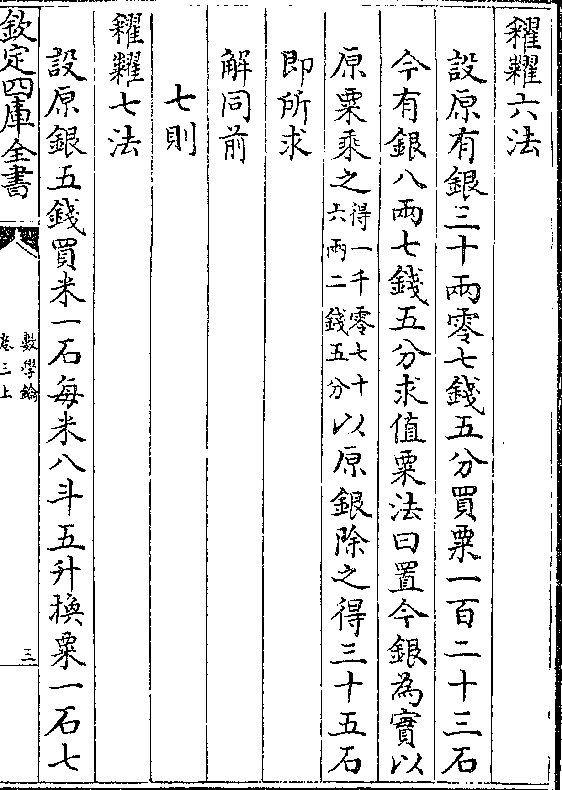 糴糶六法
設原有銀三十兩零七錢五分買粟一百二十三石
今有銀八兩七錢五分求值粟法曰置今銀為實以
原粟乘之得一千零七十六兩二錢五分以原銀除之得三十五石
即所求
解同前
七則
糴糶七法
設原銀五錢買米一石每米八斗五升換粟一石七
欽定四庫全書
數學鑰
卷三上
三